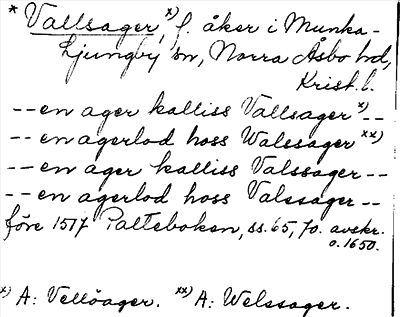 * Vallsager,ˣ⁾ f. åker i Munka-
Ljungby sn, Norra Åsbo hd,
Krist. l.
-- en ager kalliss Vallsager ˣ⁾--
-- en agerlod hoss Walssager ˣˣ⁾
-- en ager kalliss Valssager --
-- en agerlod hoss Valssager --
före 1517 Palteboken, ss. 65, 70. avskr.
o. 1650.
ˣ⁾ A: Vellöager. ˣˣ⁾ A: Welssager.